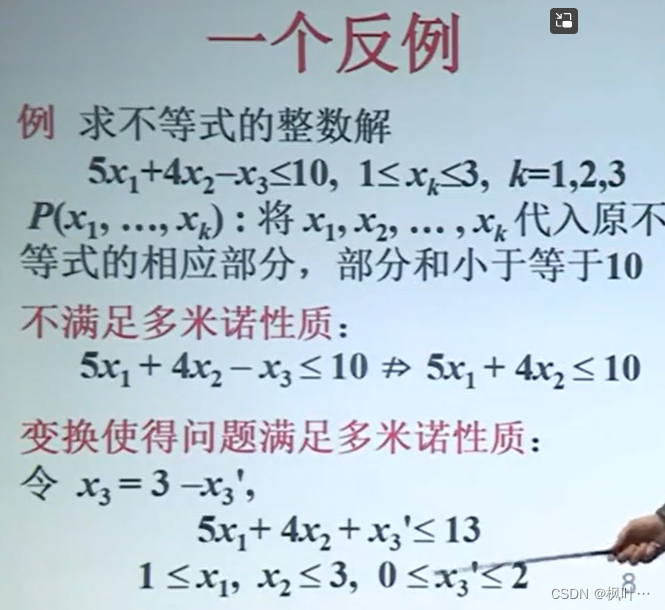 一个反例
例 求不等式的整数解
5x₁+4x₂–x₃≤10, 1≤xₖ≤3, k=1,2,3
P(x₁, …, xₖ) : 将 x₁, x₂, … , xₖ 代入原不
等式的相应部分，部分和小于等于10
不满足多米诺性质：
5x₁ + 4x₂ – x₃ ≤ 10 ⇏ 5x₁ + 4x₂ ≤ 10
变换使得问题满足多米诺性质：
令 x₃ = 3 –x₃',
5x₁+ 4x₂ + x₃'≤ 13
1 ≤ x₁, x₂ ≤ 3, 0 ≤x₃'≤ 2
8
CSDN @枫叶…